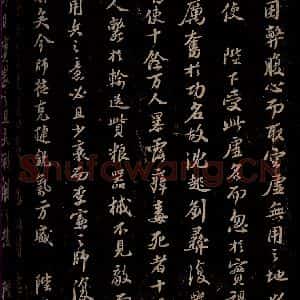 困弊腹心而取空虛無用之地以
使 陛下受此虛名而忽於實禍
厲奮於功名故沈起劉彝復發
使十餘万人暴露瘴毒死者十
人斃於輸送貲粮器械不見敵而
用兵之意必且少衰而李憲之師復
矣今師徒克捷銳氣方盛 陛
Shufawang.CN